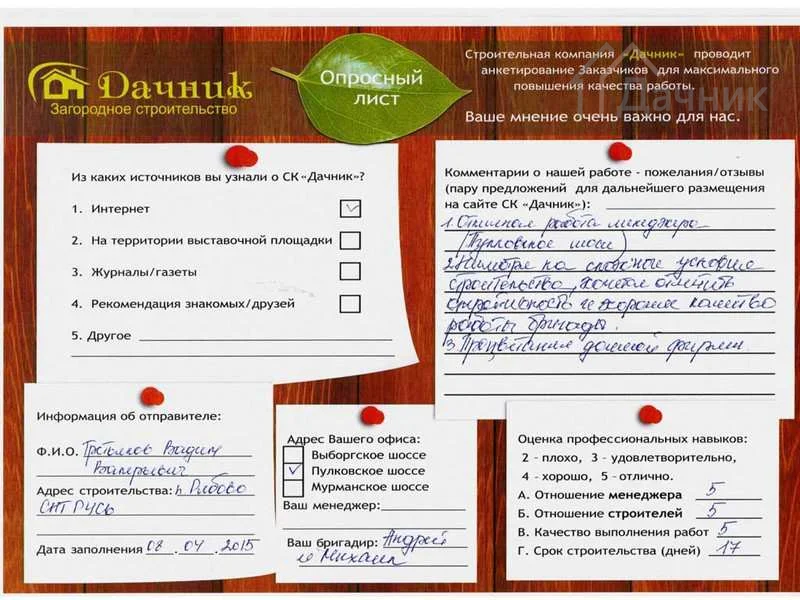 Дачник
Загородное строительство
Опросный
лист
Строительная компания «Дачник» проводит
анкетирование Заказчиков для максимального
повышения качества работы.
Ваше мнение очень важно для нас.
Дачник
Из каких источников вы узнали о СК «Дачник»?
1. Интернет
2. На территории выставочной площадки
3. Журналы/газеты
4. Рекомендация знакомых/друзей
5. Другое
Комментарии о нашей работе - пожелания/отзывы
(пару предложений для дальнейшего размещения
на сайте СК «Дачник»):
1. Отличная работа менеджера
(Пулковское шоссе)
2. Несмотря на сложные условия
строительства, хочется отметить
оперативность и хорошее качество
работы бригады.
3. Процветания фирме.
Информация об отправителе:
Ф.И.О. Третьяков Вадим
Валерьевич
Адрес строительства: п. Рябово
СНТ РУСЬ
Дата заполнения 08.04.2015
Адрес Вашего офиса:
Выборгское шоссе
Пулковское шоссе
Мурманское шоссе
Ваш менеджер:
Ваш бригадир: Андрей
и Михаил
Оценка профессиональных навыков:
2 - плохо, 3 - удовлетворительно,
4 - хорошо, 5 - отлично.
А. Отношение менеджера 5
Б. Отношение строителей 5
В. Качество выполнения работ 5
Г. Срок строительства (дней) 17